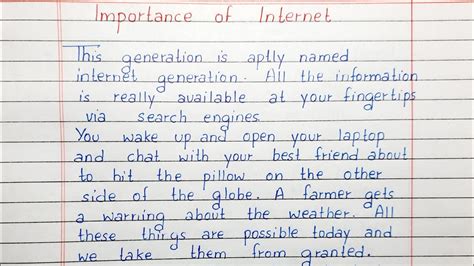 Importance of Internet
This generation is aptly named
internet generation. All the information
is really available at your fingertips
via search engines
You wake up and open your laptop
and chat with your best friend about
to hit the pillow on the other
side of the globe. A farmer gets
a warning about the weather. All
these things are possible today and
we take them from granted.